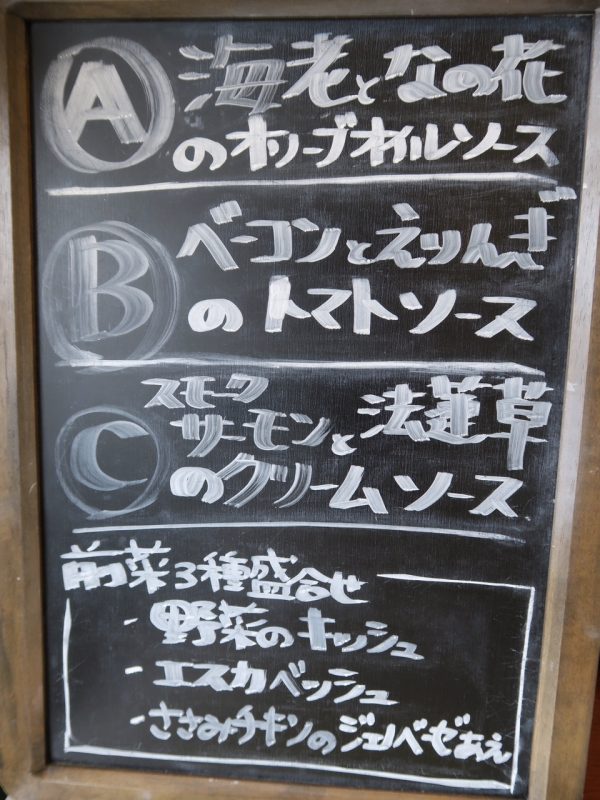 A 海老となの花
のオリーブオイルソース
B ベーコンとえりんぎ
のトマトソース
スモーク
C サーモンと法蓮草
のクリームソース
前菜3種盛合せ
- 野菜のキッシュ
- エスカベッシュ
- ささみチキンのジェノベーゼあえ